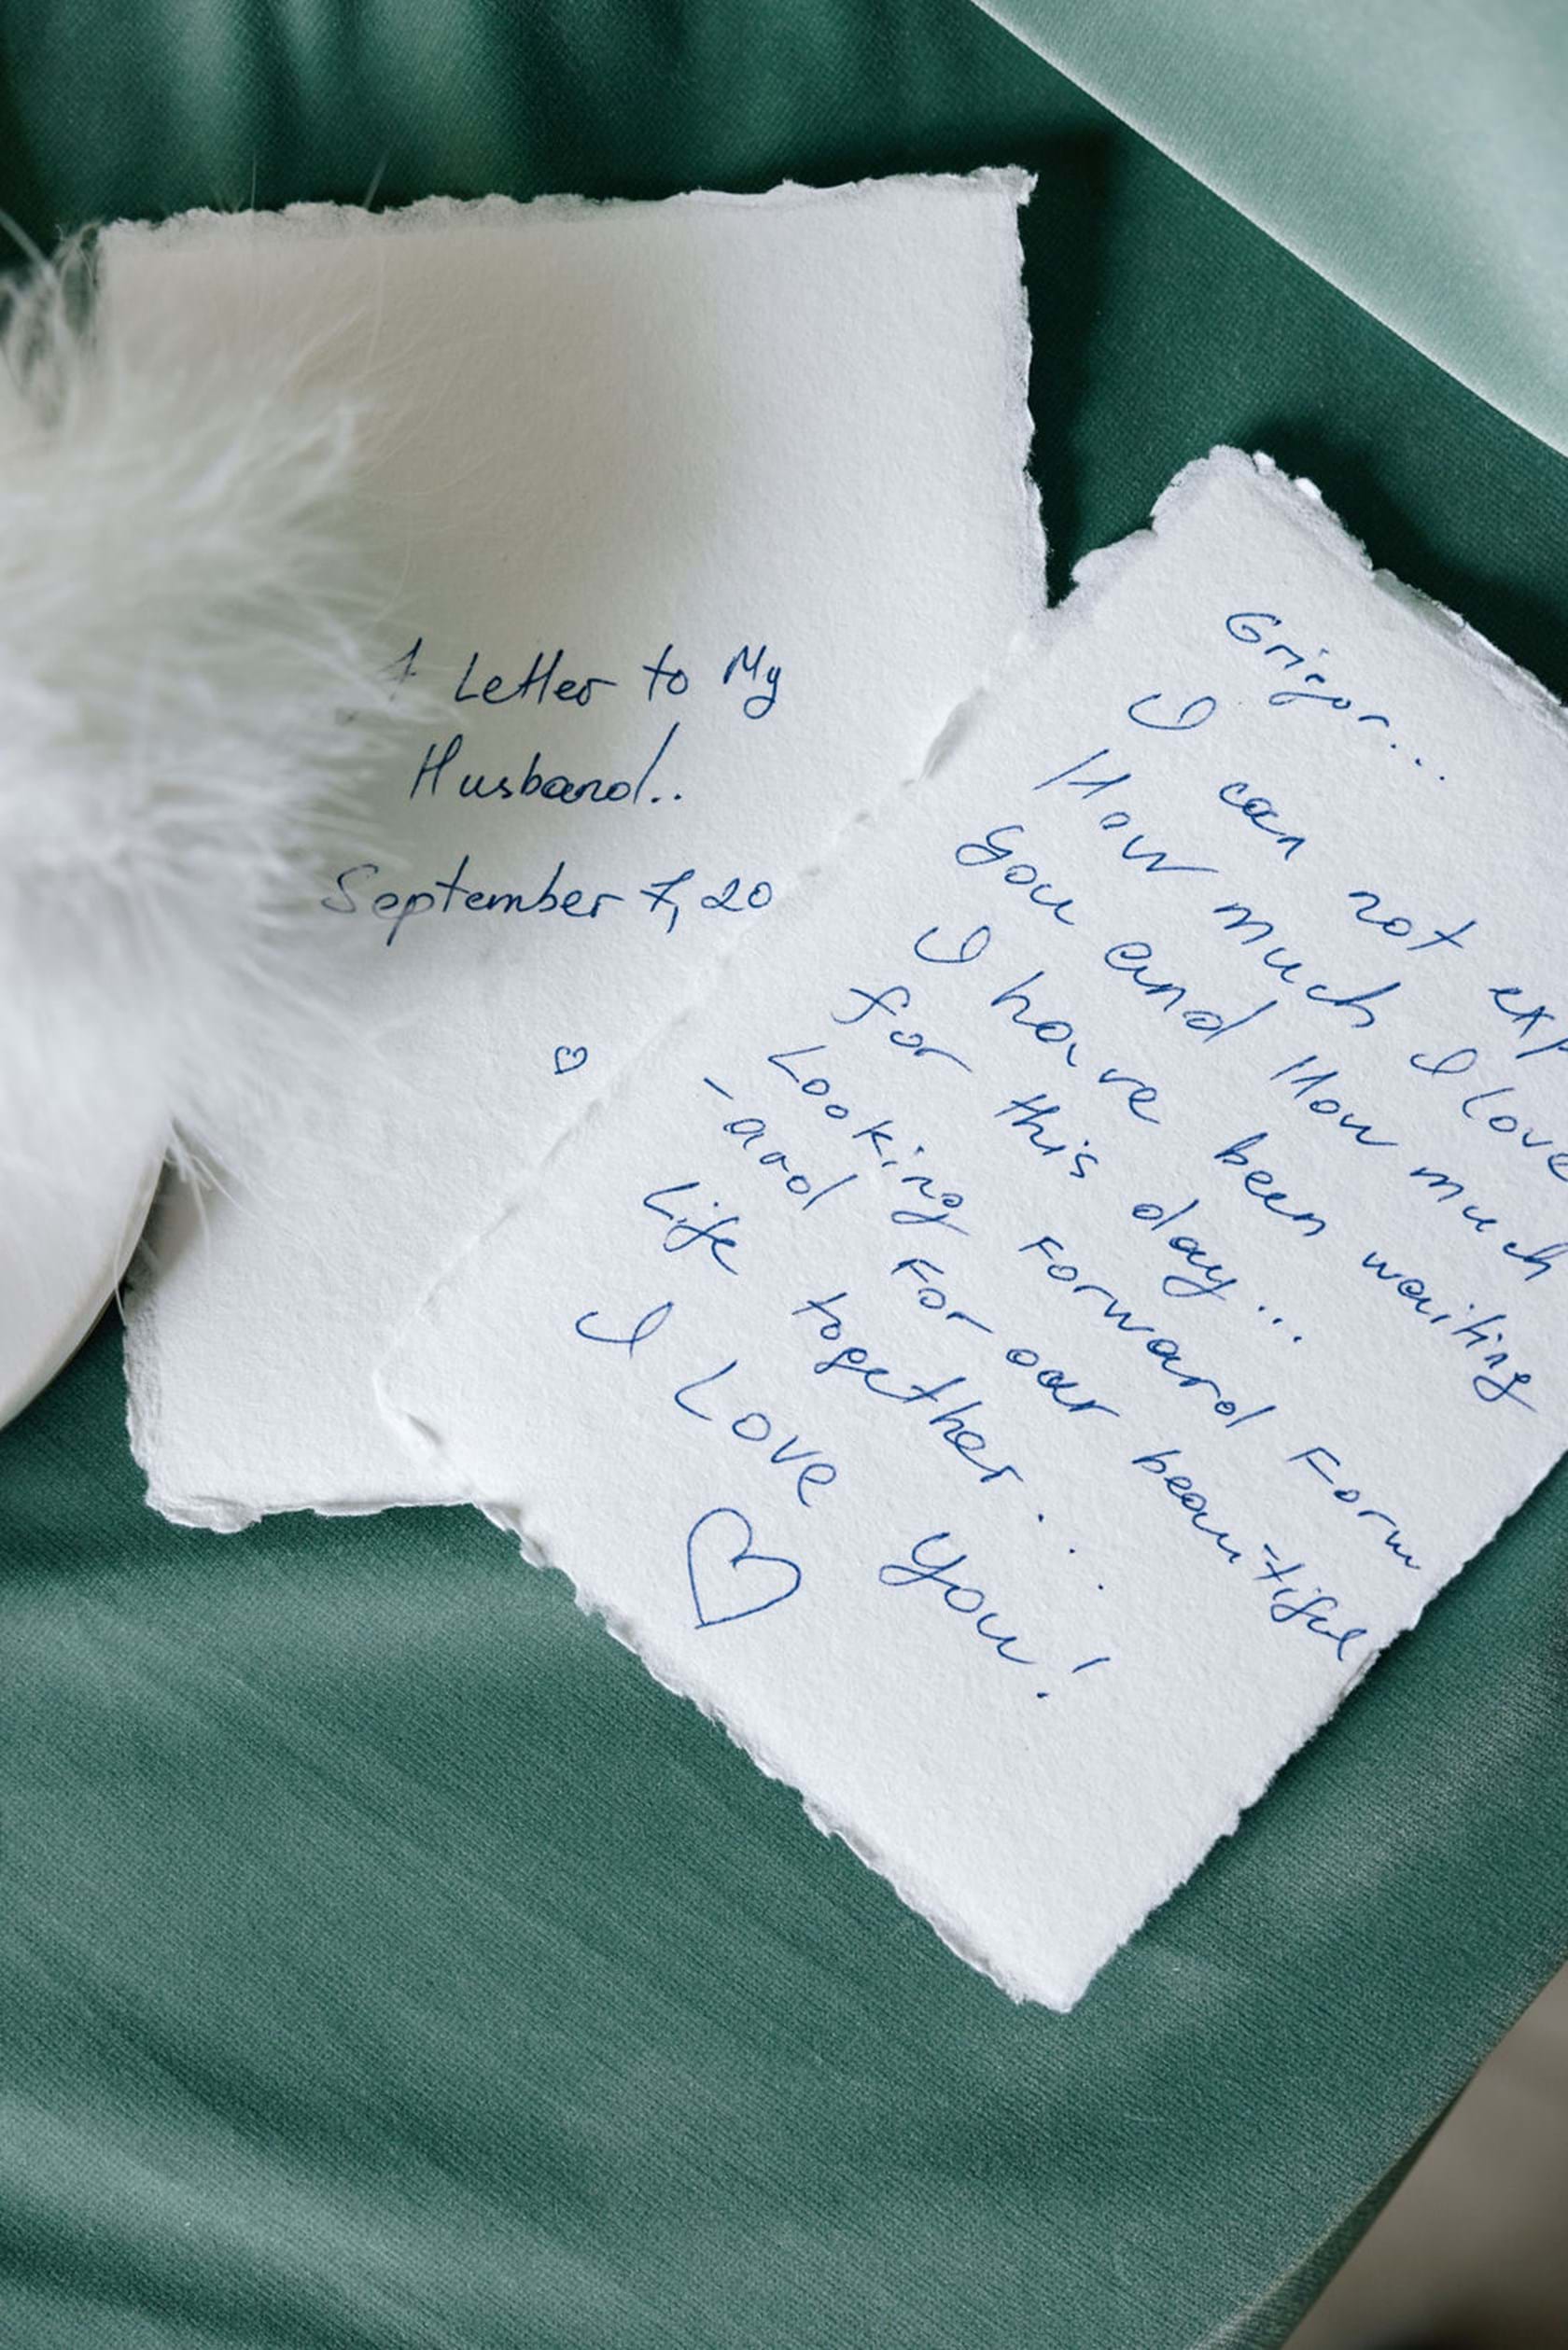 A Letter to My
Husband..
September 7, 20
Grigor...
I can not exp
How much I love
you and How much
I have been waiting
for this day...
Looking Forward Forw
-ard For our beautiful
Life together...
I Love you!